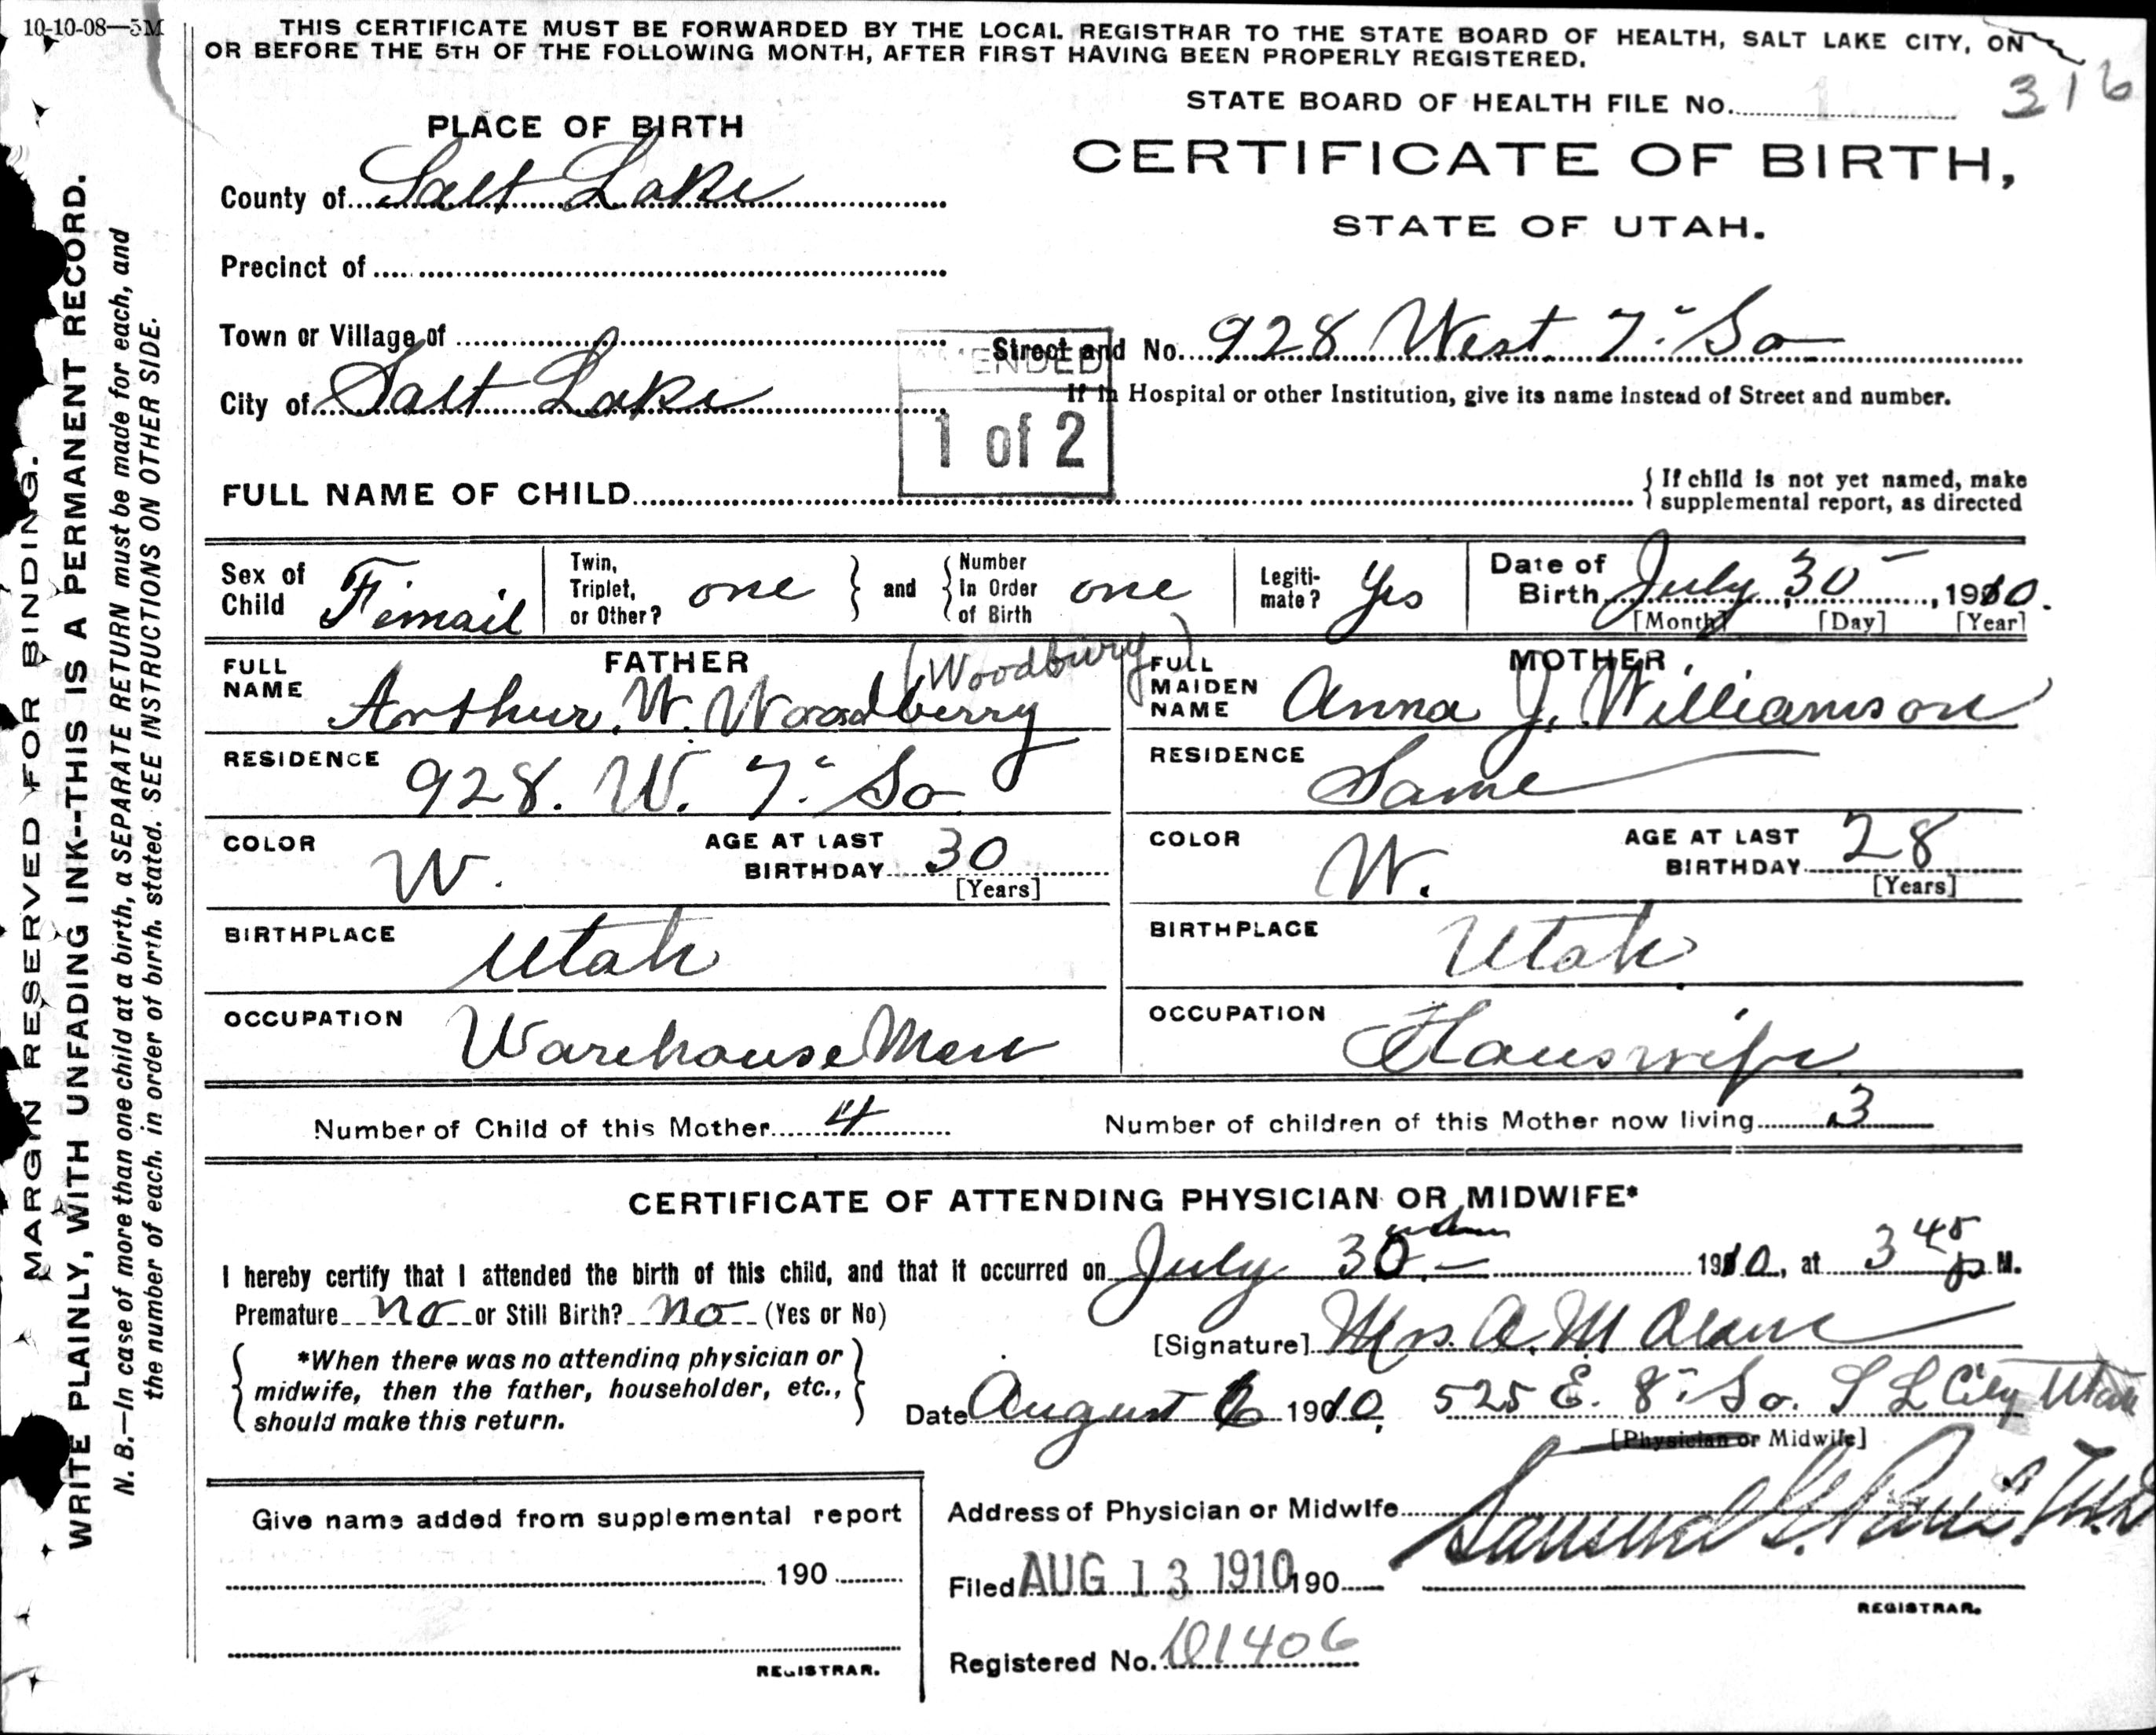 10-10-08—5M
THIS CERTIFICATE MUST BE FORWARDED BY THE LOCAL REGISTRAR TO THE STATE BOARD OF HEALTH, SALT LAKE CITY, ON
OR BEFORE THE 5TH OF THE FOLLOWING MONTH, AFTER FIRST HAVING BEEN PROPERLY REGISTERED.
STATE BOARD OF HEALTH FILE No. 316
PLACE OF BIRTH
CERTIFICATE OF BIRTH,
STATE OF UTAH.
County of Salt Lake
Precinct of
Town or Village of
Street and No. 928 West 7" So
AMENDED
City of Salt Lake
If in Hospital or other Institution, give its name instead of Street and number.
1 of 2
FULL NAME OF CHILD
{ If child is not yet named, make
supplemental report, as directed
Sex of Child Fimail
Twin, Triplet, or Other? one } and { Number In Order of Birth one
Legiti-mate? Yes
Date of Birth July 30, 1910.
[Month] [Day] [Year]
FATHER
(Woodbury)
FULL NAME Arthur. W. Woodberry
RESIDENCE 928. W. 7" So
COLOR W. AGE AT LAST BIRTHDAY 30
[Years]
BIRTHPLACE Utah
OCCUPATION Warehouse Men
MOTHER
FULL MAIDEN NAME Anna J. Williamson
RESIDENCE Same
COLOR W. AGE AT LAST BIRTHDAY 28
[Years]
BIRTHPLACE Utah
OCCUPATION Houswife
Number of Child of this Mother 4 Number of children of this Mother now living 3
CERTIFICATE OF ATTENDING PHYSICIAN OR MIDWIFE*
I hereby certify that I attended the birth of this child, and that it occurred on July 30 1910, at 3 45 p M.
Premature no or Still Birth? no (Yes or No)
[Signature] Mrs. A. M.
{ *When there was no attending physician or
midwife, then the father, householder, etc.,
should make this return. }
Date August 6 1910, 525 E. 8" So. S L City Utah
[Physician or Midwife]
Give name added from supplemental report
190
REGISTRAR.
Address of Physician or Midwife
Samuel G. Paul M.D
Filed AUG 13 1910 190
REGISTRAR.
Registered No. D1406
MARGIN RESERVED FOR BINDING.
WRITE PLAINLY, WITH UNFADING INK--THIS IS A PERMANENT RECORD.
N. B.—In case of more than one child at a birth, a SEPARATE RETURN must be made for each, and
the number of each, in order of birth. stated. SEE INSTRUCTIONS ON OTHER SIDE.